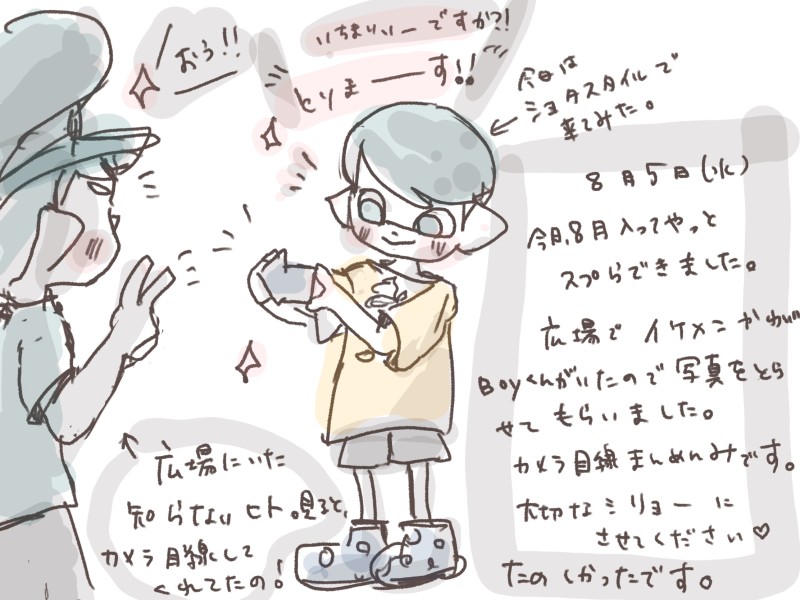 いちまいいーですか?!
とりまーーす!!
おう!!
今日は
ショタスタイルで
来てみた。
8月5日(水)
今日、8月入ってやっと
スプらできました。
広場でイケメンかわいい
Boyくんがいたので写真をとら
せてもらいました。
カメラ目線まんめんみです。
大切なシリョーに
させてください♡
たのしかったです。
↑広場にいた
知らないヒト。見ると、
カメラ目線して
くれてたの!